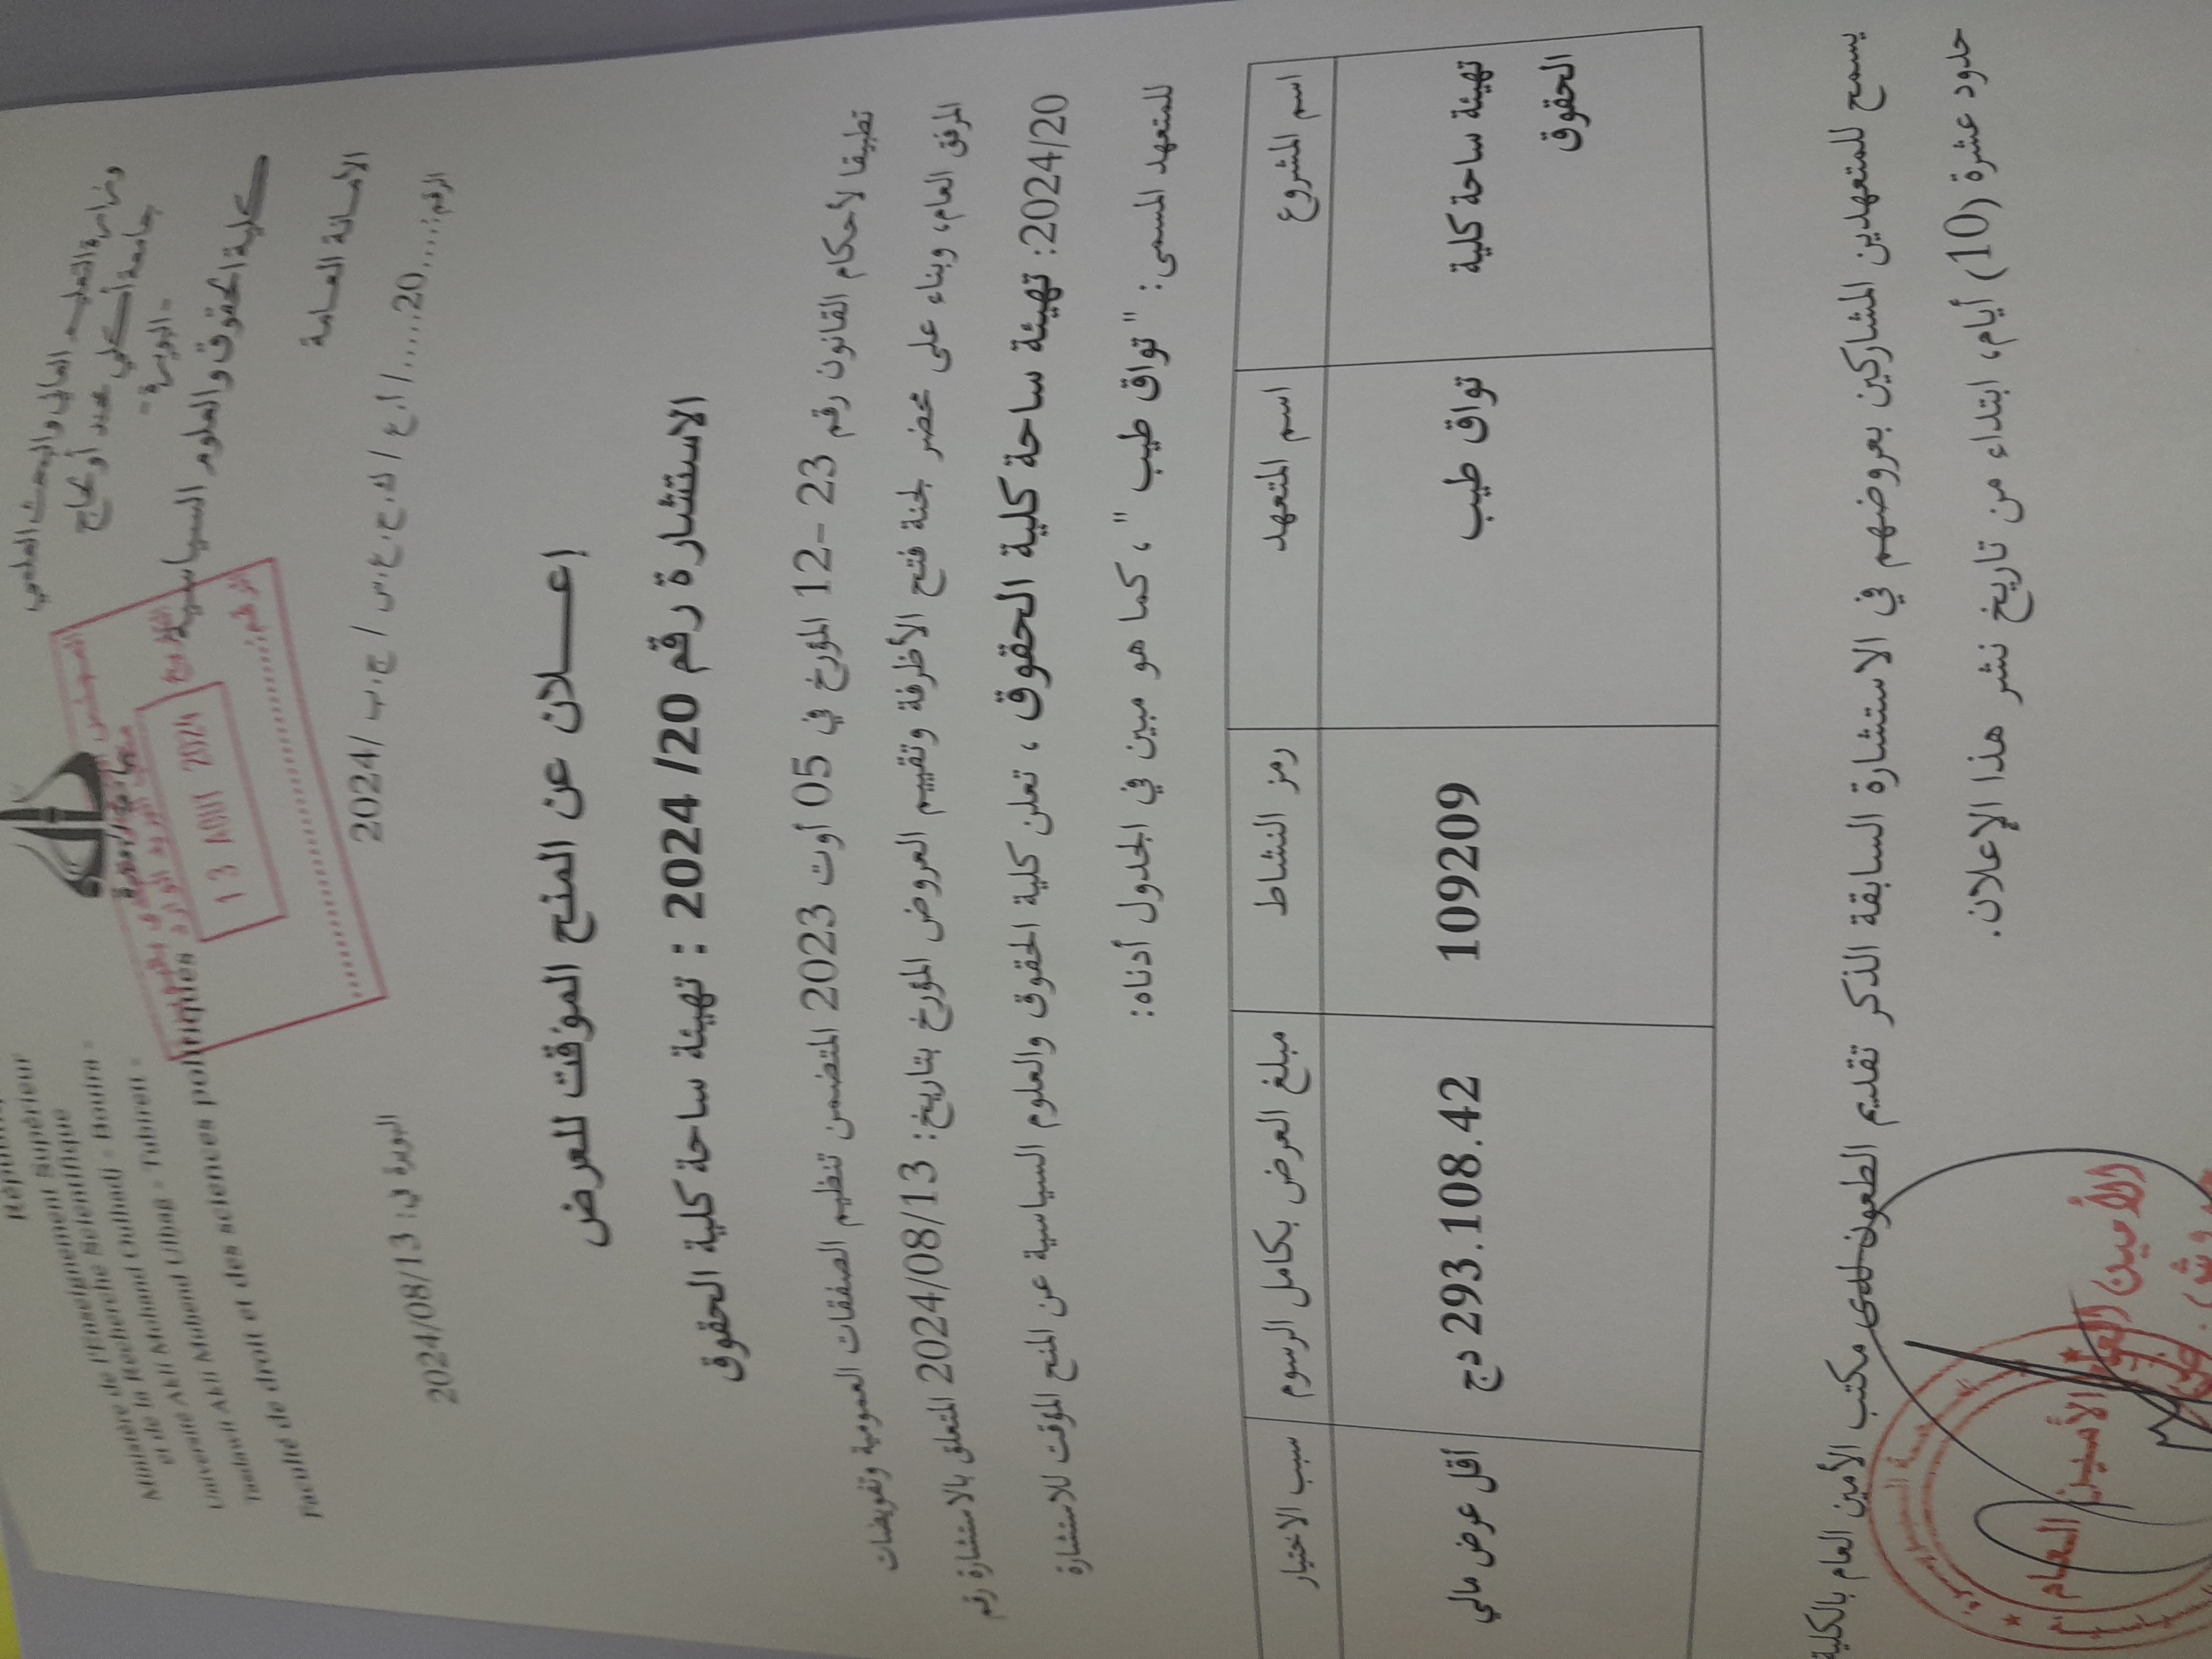 Enseignement Supérieur
Ministère de l'Enseignement Supérieur
et de la Recherche Scientifique
Université Akli Mohand Oulhadj - Bouira -
Tasdawit Akli Muḥend Ulḥağ - Tubirett -
Faculté de droit et des sciences politiques
وزارة التعليم العالي والبحث العلمي
جامعة أكلي محند أولحاج
- البويرة -
كلية الحقوق والعلوم السياسية
الأمانة العامة
الرقم:....20...../ا.ع/ك.ح.ع.س/ج.ب/2024
البويرة في: 2024/08/13
13 AOUT 2024
إعـــلان عن المنح المؤقت للعرض
الاستشارة رقم 20/ 2024 : تهيئة ساحة كلية الحقوق
تطبيقا لأحكام القانون رقم 23 –12 المؤرخ في 05 أوت 2023 المتضمن تنظيم الصفقات العمومية وتفويضات
المرفق العام، وبناء على محضر لجنة فتح الأظرفة وتقييم العروض المؤرخ بتاريخ: 2024/08/13 المتعلق بالاستشارة رقم
2024/20: تهيئة ساحة كلية الحقوق ، تعلن كلية الحقوق والعلوم السياسية عن المنح المؤقت للاستشارة
للمتعهد المسمى: " تواق طيب "، كما هو مبين في الجدول أدناه:
اسم المشروع اسم المتعهد رمز النشاط مبلغ العرض بكامل الرسوم سبب الاختيار
تهيئة ساحة كلية تواق طيب 109209 293.108.42 دج أقل عرض مالي
الحقوق
يسمح للمتعهدين المشاركين بعروضهم في الاستشارة السابقة الذكر تقديم الطعون لدى مكتب الأمين العام بالكلية
حدود عشرة (10) أيام، ابتداء من تاريخ نشر هذا الإعلان.
الأمين العام
الأمين العام